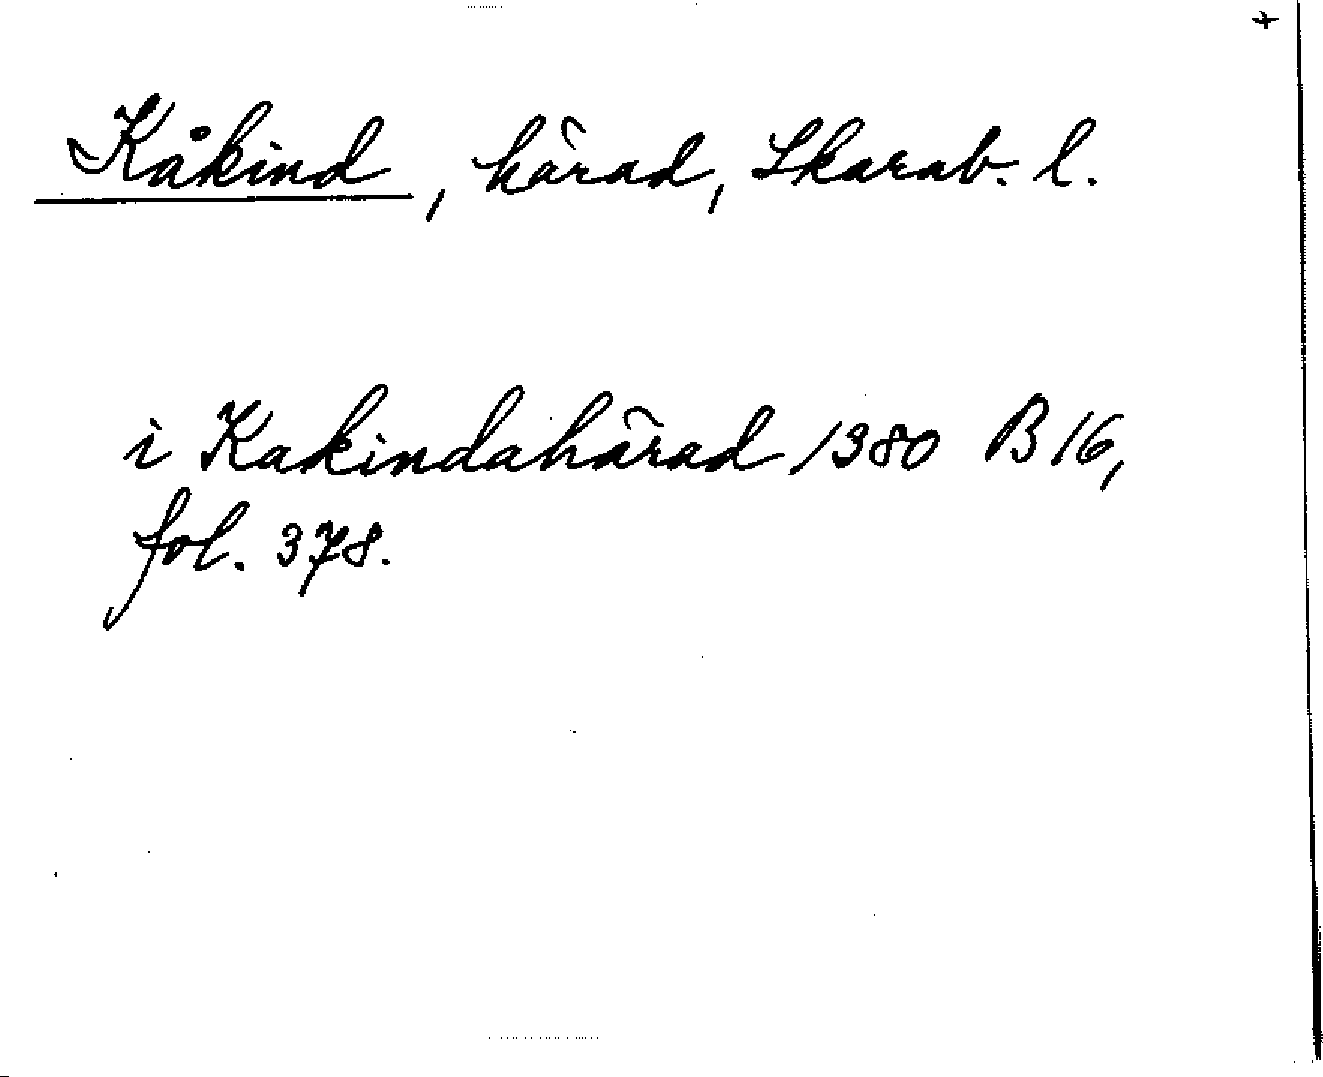 +
Kåkind, härad, Skarab. l.
i Kakindahärad 1380 B 16,
fol. 378.